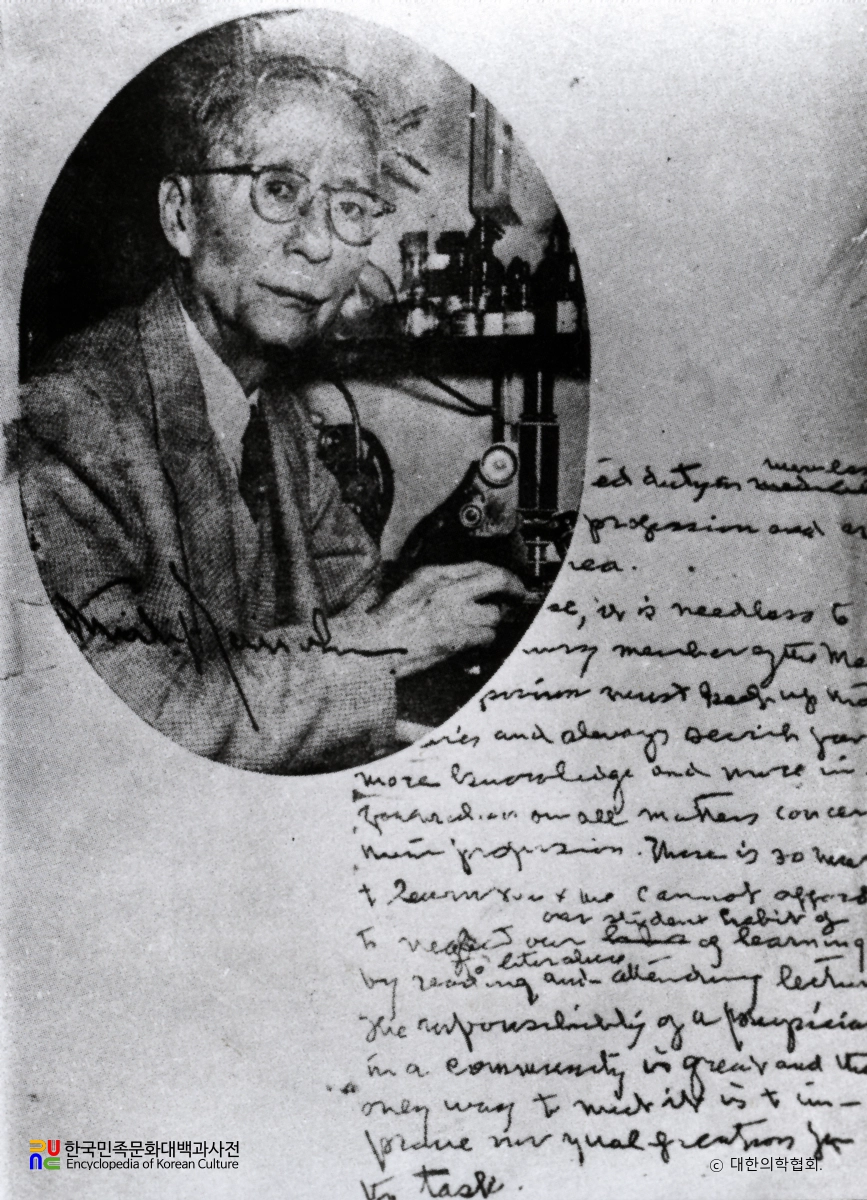 ed duty as members
profession and
rea.
se, it is needless to
every member of the Me
must keep up
ries and always search for
more knowledge and more in
on all matters concer
profession. There is so much
to learn you & me cannot afford
our student habit of
to neglect our of learning
literature
by reading and attending lectur
The responsibility of a physicia
in a community is great and the
only way to meet it is to im-
prove our qualifications for
task.
한국민족문화대백과사전
Encyclopedia of Korean Culture
© 대한의학협회.